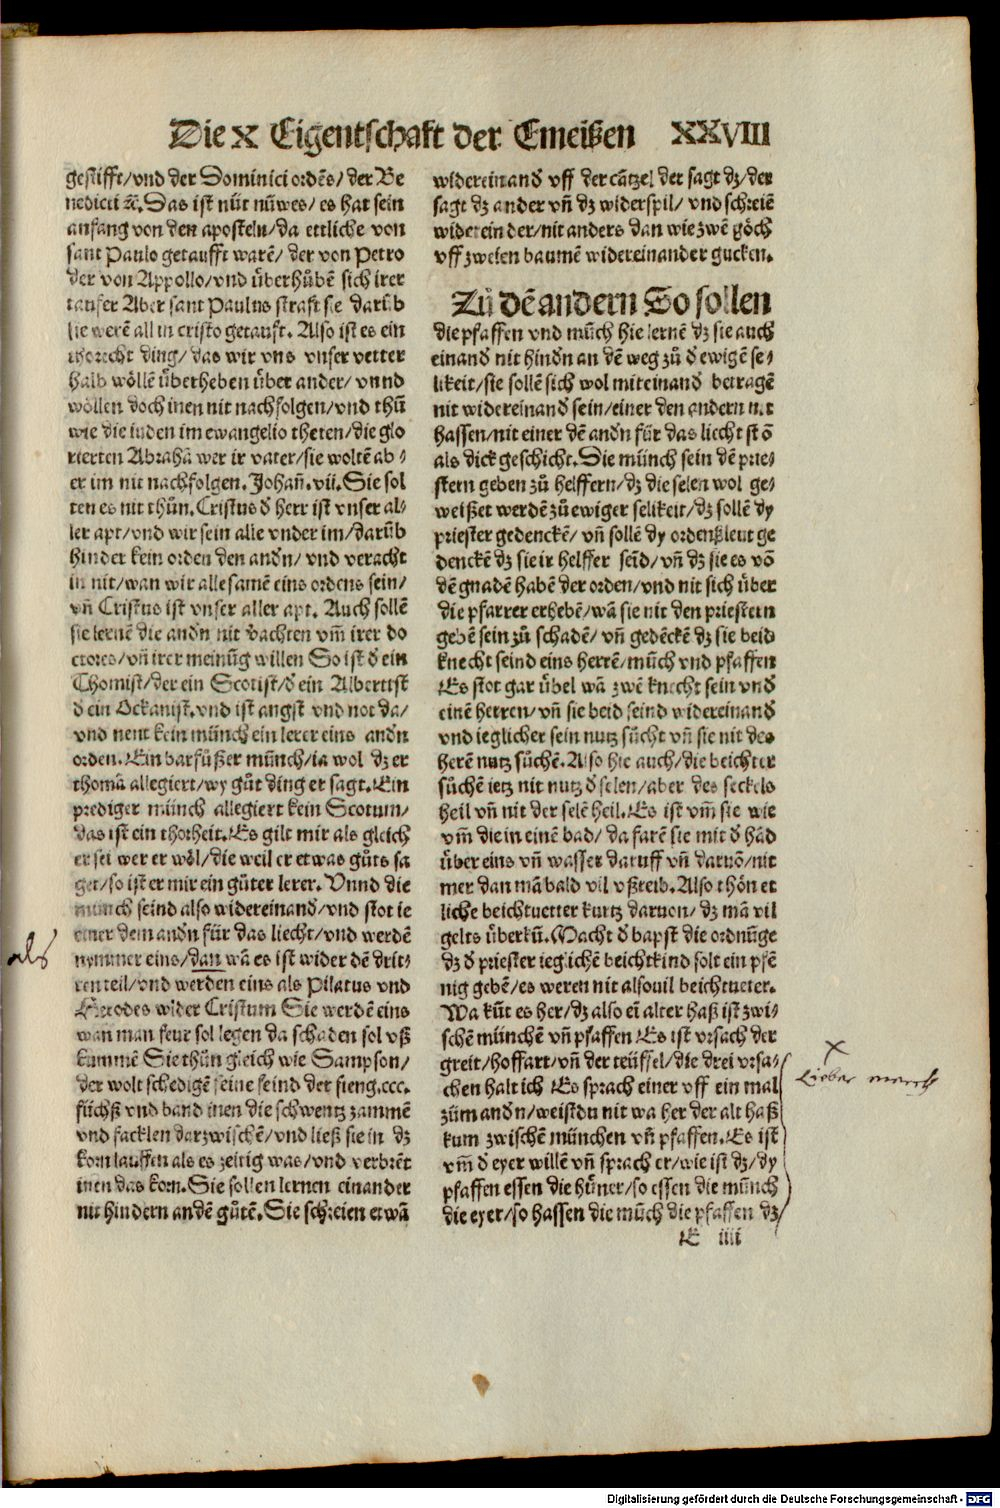 Die X Eigentschafft der Emeißen XXVIII
gestifft/vnd der Dominici ordẽs/der Be
nedicti ꝛc̃. Das ist nüt nüwes/es hat sein
anfang von den aposteln/da ettliche von
sant Paulo getaufft warẽ/der von Petro
der von Appollo/vnd überhůbẽ sich irer
taufer Aber sant Paulus straft sie darüb
sie werẽ all in cristo getauft. Also ist es ein
thorecht ding/das wir vns vnser vetter
halb wöllẽ überheben über ander/vnnd
wöllen doch inen nit nachfolgen/vnd thů
wie die iuden im ewangelio theten/die glo
rierten Abrahã wer ir vater/sie woltẽ ab⸗
er im nit nachfolgen. Johañ. vii. Sie sol
ten es nit thůn. Cristus d herr ist vnser al⸗
ler apt/vnd wir sein alle vnder im/darũb
hinder kein orden den andn/vnd veracht
in nit/wan wir alle samẽ eins ordens sein/
vñ Cristus ist vnser aller apt. Auch sollẽ
sie lernẽ die andn nit vachten vm̃ irer do
ctores/vñ irer meinũg willen So ist d ein
Thomist/der ein Scotist/d ein Albertist
d ein Ockanist. vnd ist angst vnd not da/
vnd nent kein münch ein lerer eins andn
orden. Ein barfůßer münch/ia wol dz er
thomã allegiert/wy gůt ding er sagt. Ein
prediger münch allegiert kein Scotum/
das ist ein thorheit. Es gilt mir als gleich
er sei wer er wöl/die weil er etwas gůts sa
get/so ist er mir ein gůter lerer. Vnnd die
münch seind also widereinand/vnd stot ie
einer dem andn für das liecht/vnd werdẽ
als
nymmer eins/dan wã es ist wider dẽ drit⸗
ten teil/vnd werden eins als Pilatus vnd
Herodes wider Cristum Sie werdẽ eins
wan man feur sol legen da schaden sol vß
kummẽ Sie thůn gleich wie Sampson/
der wolt schedigẽ seine feind der fieng.ccc.
füchß vnd band inen die schwentz zammẽ
vnd facklen darzwischẽ/vnd ließ sie in dz
korn lauffen als es zeitig was/vnd verbrẽt
inen das korn. Sie sollen lernen einander
nit hindern an dẽ gůtẽ. Sie schreien etwã
widereinand vff der cãtzel der sagt dz/der
sagt dz ander vñ dz widerspil/vnd schreiẽ
wider ein der/nit anders dan wie zwẽ göch
vff zweien baumẽ widereinander gucken.
Zů dẽ andern So sollen
die pfaffen vnd münch hie lernẽ dz sie auch
einand nit hindn an dẽ weg zů d ewigẽ se⸗
likeit/sie sollẽ sich wol miteinand betragẽ
nit widereinand sein/einer den andern nit
hassen/nit einer dẽ andn für das liecht stõ
als dick geschicht. Die münch sein dẽ prie⸗
stern geben zů helffern/dz die selen wol ge⸗
weißet werdẽ zů ewiger selikeit/dz sollẽ dy
priester gedenckẽ/vñ sollẽ dy ordenßleut ge
denckẽ dz sie ir helffer seĩd/vñ dz sie es võ
dẽ gnadẽ habẽ der orden/vnd nit sich über
die pfarrer erhebẽ/wã sie nit den priestern
gebẽ sein zů schadẽ/vñ gedẽckẽ dz sie beid
knecht seind eins herrẽ/münch vnd pfaffen
Es stot gar übel wã zwẽ knecht sein vnd
einẽ herren/vñ sie beid seind widereinand
vnd ieglicher sein nutz sůcht vñ sie nit des
herẽ nutz sůchẽ. Also hie auch/die beichter
sůchẽ ietz nit nutz d selen/aber des seckels
heil vñ nit der selẽ heil. Es ist vm̃ sie wie
vm̃ die in einẽ bad/da farẽ sie mit d hãd
über eins vñ wasser daruff vñ daruõ/nit
mer dan mã bald vil vßreib. Also thõn et
liche beichtuetter kurtz daruon/dz mã vil
gelts überkũ. Macht d bapst die ordnũge
dz d priester ieglichẽ beichtkind solt ein pfẽ
nig gebẽ/es weren nit alsouil beichtueter.
Wa kũt es her/dz also eĩ alter haß ist zwi⸗
schẽ münchẽ vñ pfaffen Es ist vrsach der
greit/hoffart/vñ der teüffel/die drei vrsa⸗
x
chen halt ich Es sprach einer vff ein mal
Lieber merck
zům andn/weistdu nit wa her der alt haß
kum zwischẽ münchen vñ pfaffen. Es ist
vm̃ d eyer willẽ vñ sprach er/wie ist dz/dy
pfaffen essen die hüner/so essen die münch
die eyer/so hassen die müch die pfaffen dz
E iiii
Digitalisierung gefördert durch die Deutsche Forschungsgemeinschaft - DFG